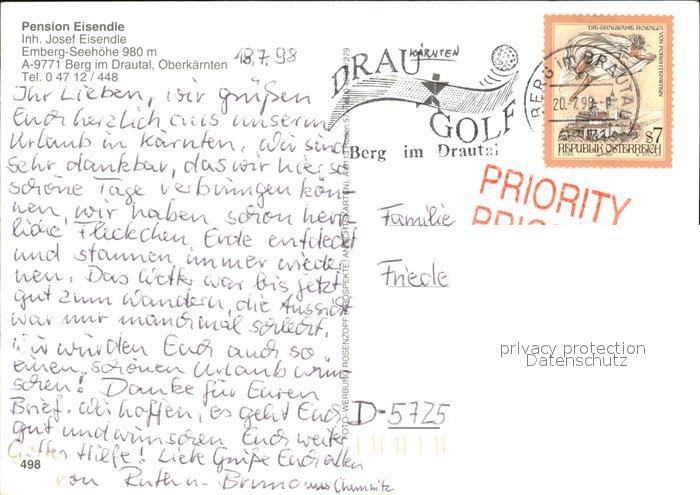 Pension Eisendle
Inh. Josef Eisendle
Emberg-Seehöhe 980 m
A-9771 Berg im Drautal, Oberkärnten
Tel. 0 47 12 / 448
18.7.98
Ihr Lieben, wir grüßen
Euch herzlich aus unserm
Urlaub in Kärnten. Wir sind
sehr dankbar, das wir hier so
schöne Tage verbringen kön-
nen, wir haben schon herr-
liche Fleckchen Erde entdeckt
und staunen immer wieder
nen. Das Wetter war bis jetzt
gut zum Wandern, die Aussicht
war nur manchmal schlecht.
Wir würden Euch auch so
einen schönen Urlaub wün-
schen! Danke für Euren
Brief. Wir hoffen, es geht Euch
gut und wünschen Euch weiter
Gottes Hilfe! Liebe Grüße Euch allen
von Ruth u. Bruno aus Chemnitz
498
FOTO-WERBUNG ROSENZOPF (PROSPEKTE, ANSICHTSKARTEN)
DRAU
KÄRNTEN
GOLF
Berg im Drautal
BERG im DRAUTAL
20.-7.98
DIE GRAUSAME ROSALIA
VON FORCHTENSTEIN
s7
REPUBLIK ÖSTERREICH
PRIORITY
Familie
Friede
D-5725
privacy protection
Datenschutz